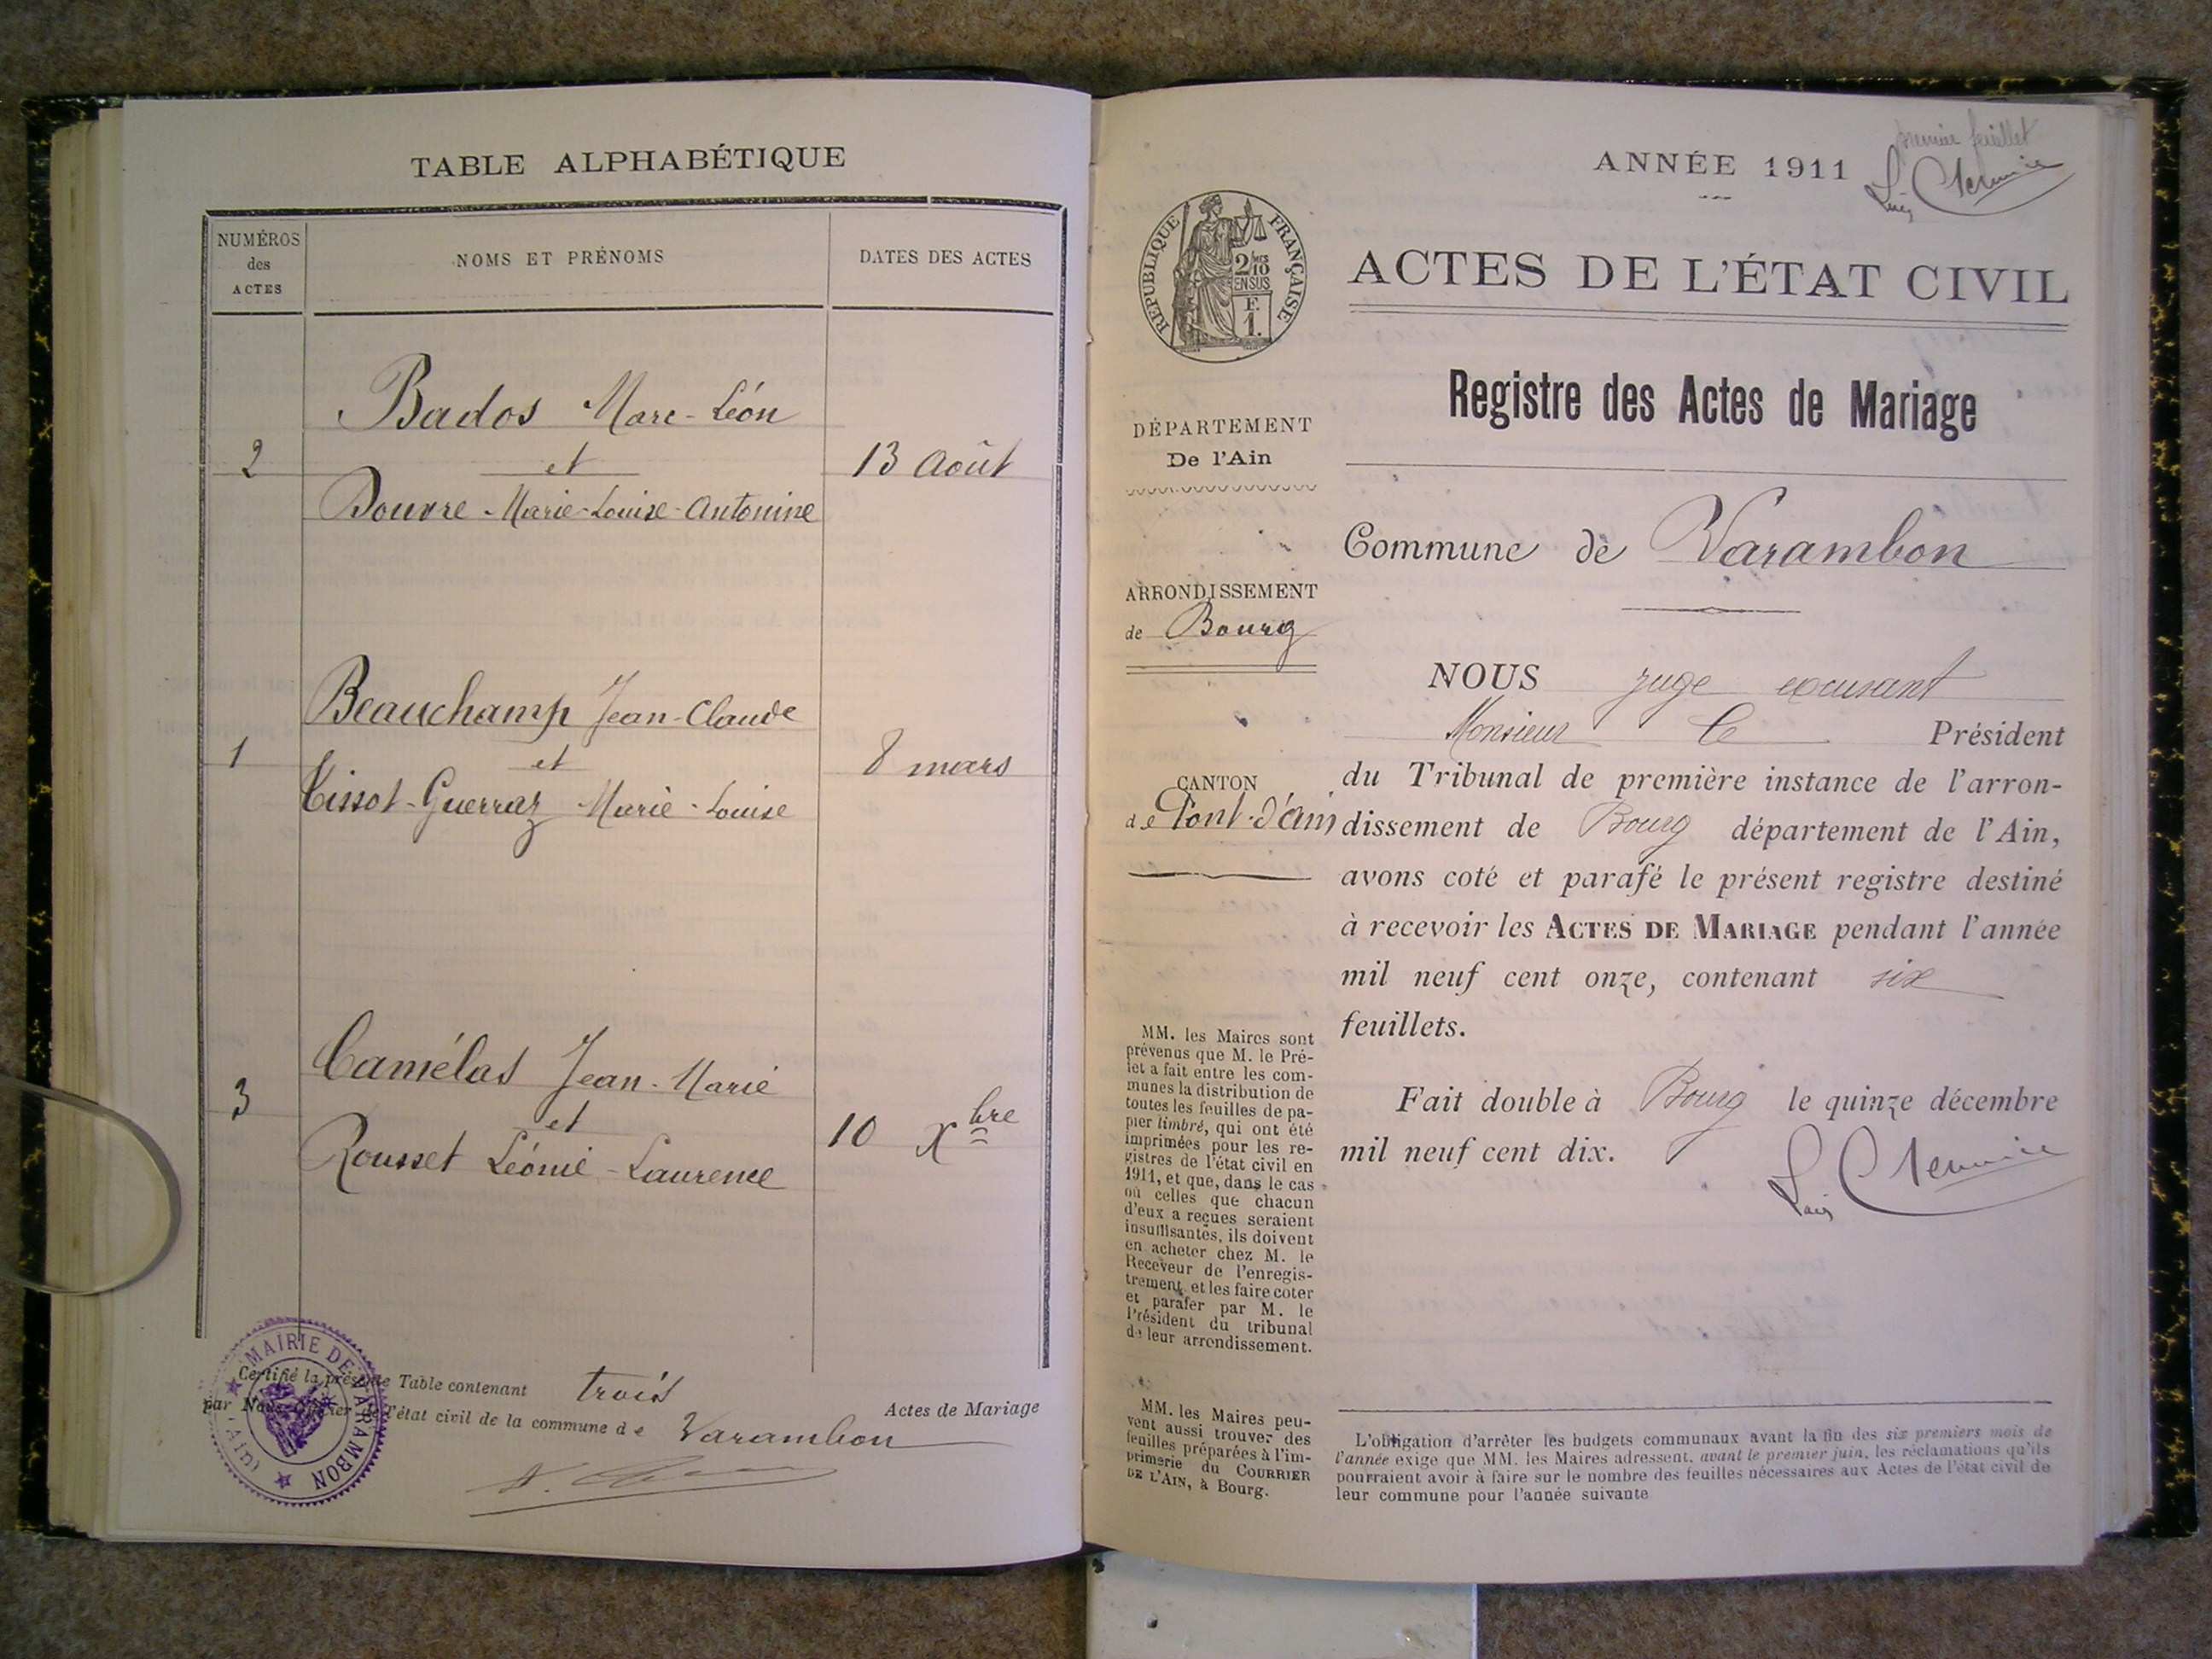 TABLE ALPHABÉTIQUE
NUMÉROS
des
ACTES
NOMS ET PRÉNOMS
DATES DES ACTES
Bados Marc-Léon
2 et 13 Août
Bouvre-Marie-Louise-Antonine
Beauchamp Jean-Claude
1 et 8 mars
Tissot-Guerraz Marie-Louise
Camélas Jean-Marie
3 et 10 Xbre
Rousset Léonie-Laurence
Certifié la présente Table contenant trois Actes de Mariage
par Nous Officier de l'état civil de la commune de Varambon
MAIRIE DE VARAMBON
(Ain)
ANNÉE 1911
premier feuillet
RÉPUBLIQUE FRANÇAISE
2/10
EN SUS
F.
1.
ACTES DE L'ÉTAT CIVIL
Registre des Actes de Mariage
DÉPARTEMENT
De l'Ain
ARRONDISSEMENT
de Bourg
CANTON
de Pont-d'Ain
MM. les Maires sont
prévenus que M. le Pré-
fet a fait entre les com-
munes la distribution de
toutes les feuilles de pa-
pier timbré, qui ont été
imprimées pour les re-
gistres de l'état civil en
1911, et que, dans le cas
où celles que chacun
d'eux a reçues seraient
insuffisantes, ils doivent
en acheter chez M. le
Receveur de l'enregis-
trement et les faire coter
et parafer par M. le
Président du tribunal
de leur arrondissement.
MM. les Maires peu-
vent aussi trouver des
feuilles préparées à l'im-
primerie du COURRIER
DE L'AIN, à Bourg.
Commune de Varambon
NOUS juge excusant
Monsieur le Président
du Tribunal de première instance de l'arron-
dissement de Bourg département de l'Ain,
avons coté et parafé le présent registre destiné
à recevoir les ACTES DE MARIAGE pendant l'année
mil neuf cent onze, contenant six
feuillets.
Fait double à Bourg le quinze décembre
mil neuf cent dix.
L'obligation d'arrêter les budgets communaux avant la fin des six premiers mois de
l'année exige que MM. les Maires adressent, avant le premier juin, les réclamations qu'ils
pourraient avoir à faire sur le nombre des feuilles nécessaires aux Actes de l'état civil de
leur commune pour l'année suivante